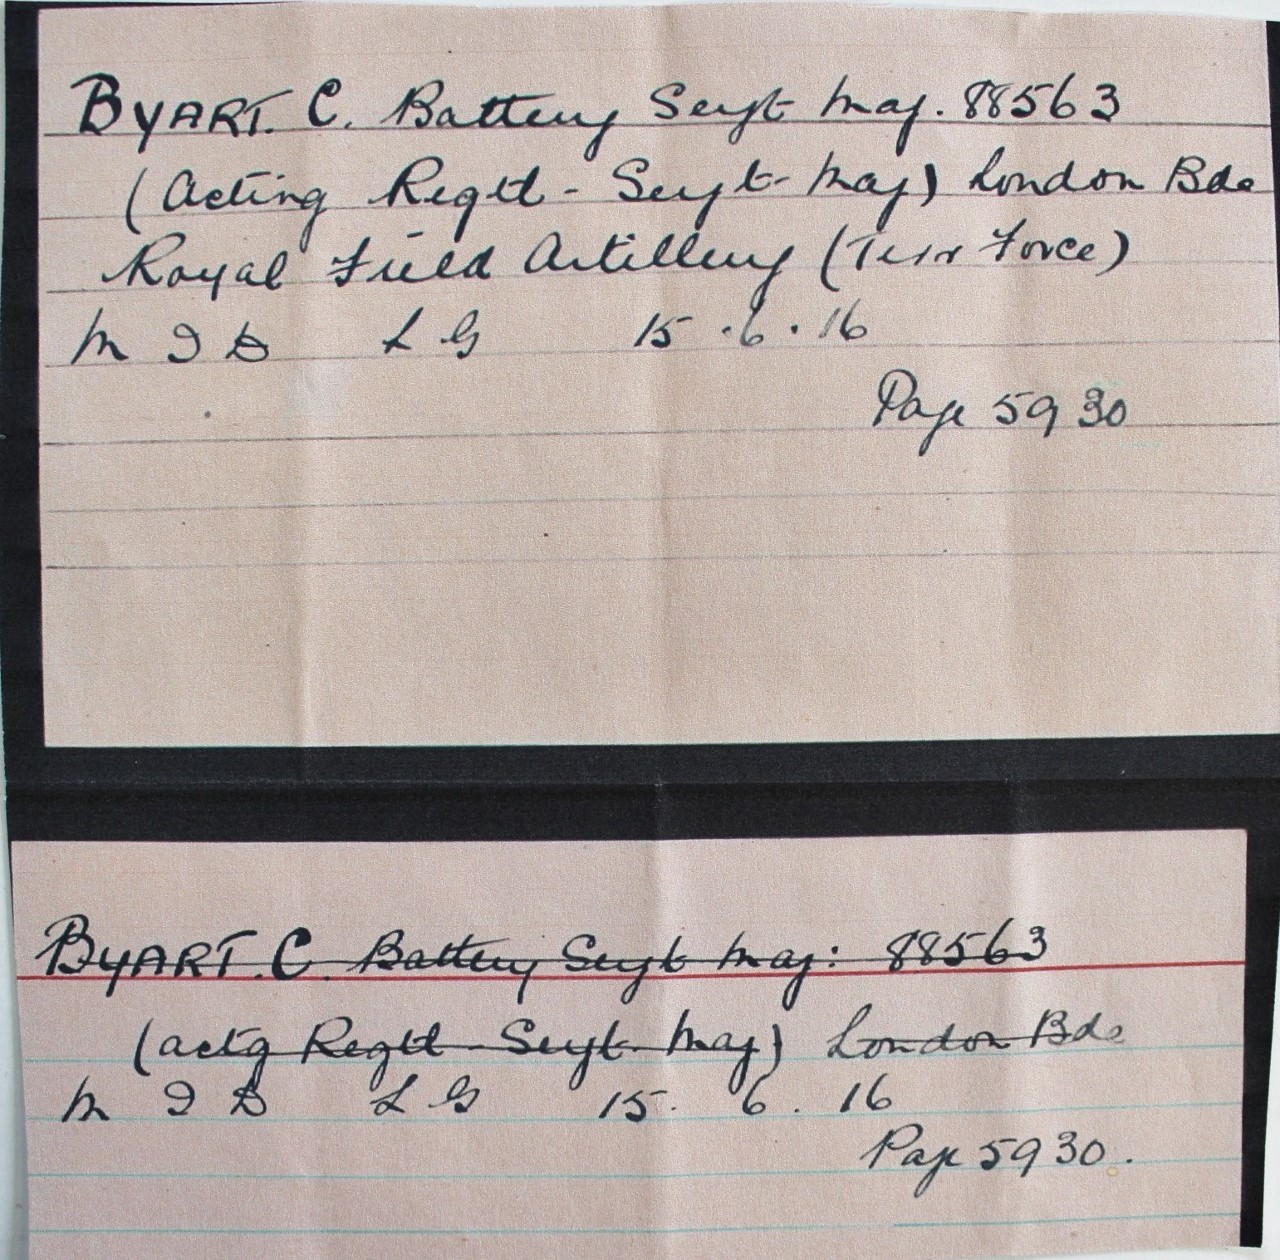 BYART. C. Battery Sergt Maj. 88563
(Acting Regtl - Sergt - Maj) London Bde
Royal Field Artillery (Terr Force)
M I D L G 15 . 6 . 16
Page 5930
BYART. C. Battery Sergt Maj: 88563
(actg Regtl - Sergt - Maj) London Bde
M I D L G 15. 6. 16
Page 5930.